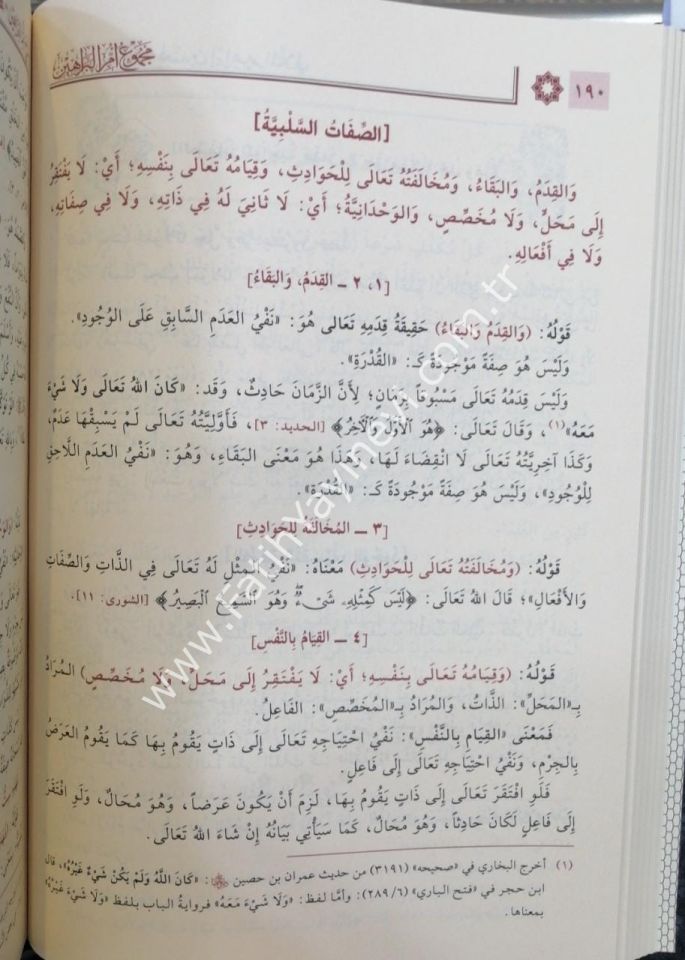 مجموع أم البراهين
١٩٠
[الصِّفَاتُ السَّلْبِيَّةُ]
وَالقِدَمُ، وَالبَقَاءُ، وَمُخَالَفَتُهُ تَعَالَى لِلْحَوَادِثِ، وَقِيَامُهُ تَعَالَى بِنَفْسِهِ؛ أَيْ: لَا يَفْتَقِرُ
إِلَى مَحَلٍّ، وَلَا مُخَصِّصٍ، وَالوَحْدَانِيَّةُ؛ أَيْ: لَا ثَانِيَ لَهُ فِي ذَاتِهِ، وَلَا فِي صِفَاتِهِ،
وَلَا فِي أَفْعَالِهِ.
[١، ٢ ـ القِدَمُ، وَالبَقَاءُ]
قَوْلُهُ: (وَالقِدَمُ وَالبَقَاءُ) حَقِيقَةُ قِدَمِهِ تَعَالَى هُوَ: «نَفْيُ العَدَمِ السَّابِقِ عَلَى الوُجُودِ».
وَلَيْسَ هُوَ صِفَةً مَوْجُودَةً كَـ: «القُدْرَةِ».
وَلَيْسَ قِدَمُهُ تَعَالَى مَسْبُوقاً بِزَمَانٍ؛ لِأَنَّ الزَّمَانَ حَادِثٌ، وَقَد: «كَانَ اللهُ تَعَالَى وَلَا شَيْءَ
مَعَهُ»(١)، وَقَالَ تَعَالَى: ﴿هُوَ ٱلْأَوَّلُ وَٱلْآخِرُ﴾ [الحديد: ٣]، فَأَوَّلِيَّتُهُ تَعَالَى لَمْ يَسْبِقْهَا عَدَمٌ،
وَكَذَا آخِرِيَّتُهُ تَعَالَى لَا انْقِضَاءَ لَهَا، وَهَذَا هُوَ مَعْنَى البَقَاءِ، وَهُوَ: «نَفْيُ العَدَمِ اللَّاحِقِ
لِلْوُجُودِ»، وَلَيْسَ هُوَ صِفَةً مَوْجُودَةً كَـ: «القُدْرَةِ».
[٣ ـ المُخَالَفَةُ لِلحَوَادِثِ]
قَوْلُهُ: (وَمُخَالَفَتُهُ تَعَالَى لِلْحَوَادِثِ) مَعْنَاهُ: «نَفْيُ المِثْلِ لَهُ تَعَالَى فِي الذَّاتِ وَالصِّفَاتِ
وَالأَفْعَالِ»؛ قَالَ اللهُ تَعَالَى: ﴿لَيْسَ كَمِثْلِهِۦ شَىْءٌ وَهُوَ ٱلسَّمِيعُ ٱلْبَصِيرُ﴾ [الشورى: ١١].
[٤ ـ القِيَامُ بِالنَّفْسِ]
قَوْلُهُ: (وَقِيَامُهُ تَعَالَى بِنَفْسِهِ؛ أَيْ: لَا يَفْتَقِرُ إِلَى مَحَلٍّ، وَلَا مُخَصِّصٍ) المُرَادُ
بِـ«المَحَلِّ»: الذَّاتُ، وَالمُرَادُ بِـ«المُخَصِّصِ»: الفَاعِلُ.
فَمَعْنَى «القِيَامِ بِالنَّفْسِ»: نَفْيُ احْتِيَاجِهِ تَعَالَى إِلَى ذَاتٍ يَقُومُ بِهَا كَمَا يَقُومُ العَرَضُ
بِالجِرْمِ، وَنَفْيُ احْتِيَاجِهِ تَعَالَى إِلَى فَاعِلٍ.
فَلَوِ افْتَقَرَ تَعَالَى إِلَى ذَاتٍ يَقُومُ بِهَا، لَزِمَ أَنْ يَكُونَ عَرَضاً، وَهُوَ مُحَالٌ، وَلَوِ افْتَقَرَ
إِلَى فَاعِلٍ لَكَانَ حَادِثاً، وَهُوَ مُحَالٌ، كَمَا سَيَأْتِي بَيَانُهُ إِنْ شَاءَ اللهُ تَعَالَى.
(١) أخرج البخاري في «صحيحه» (٣١٩١) من حديث عمران بن حصين ﵁: «كَانَ اللَّهُ وَلَمْ يَكُنْ شَيْءٌ غَيْرُهُ»، قال
ابن حجر في «فتح الباري» (٢٨٩/٦): وأمَّا لفظ: «وَلَا شَيْءَ مَعَهُ» فروايةُ الباب بلفظ «وَلَا شَيْءَ غَيْرُهُ»
بمعناها.
www.fatihyayinevi.com.tr